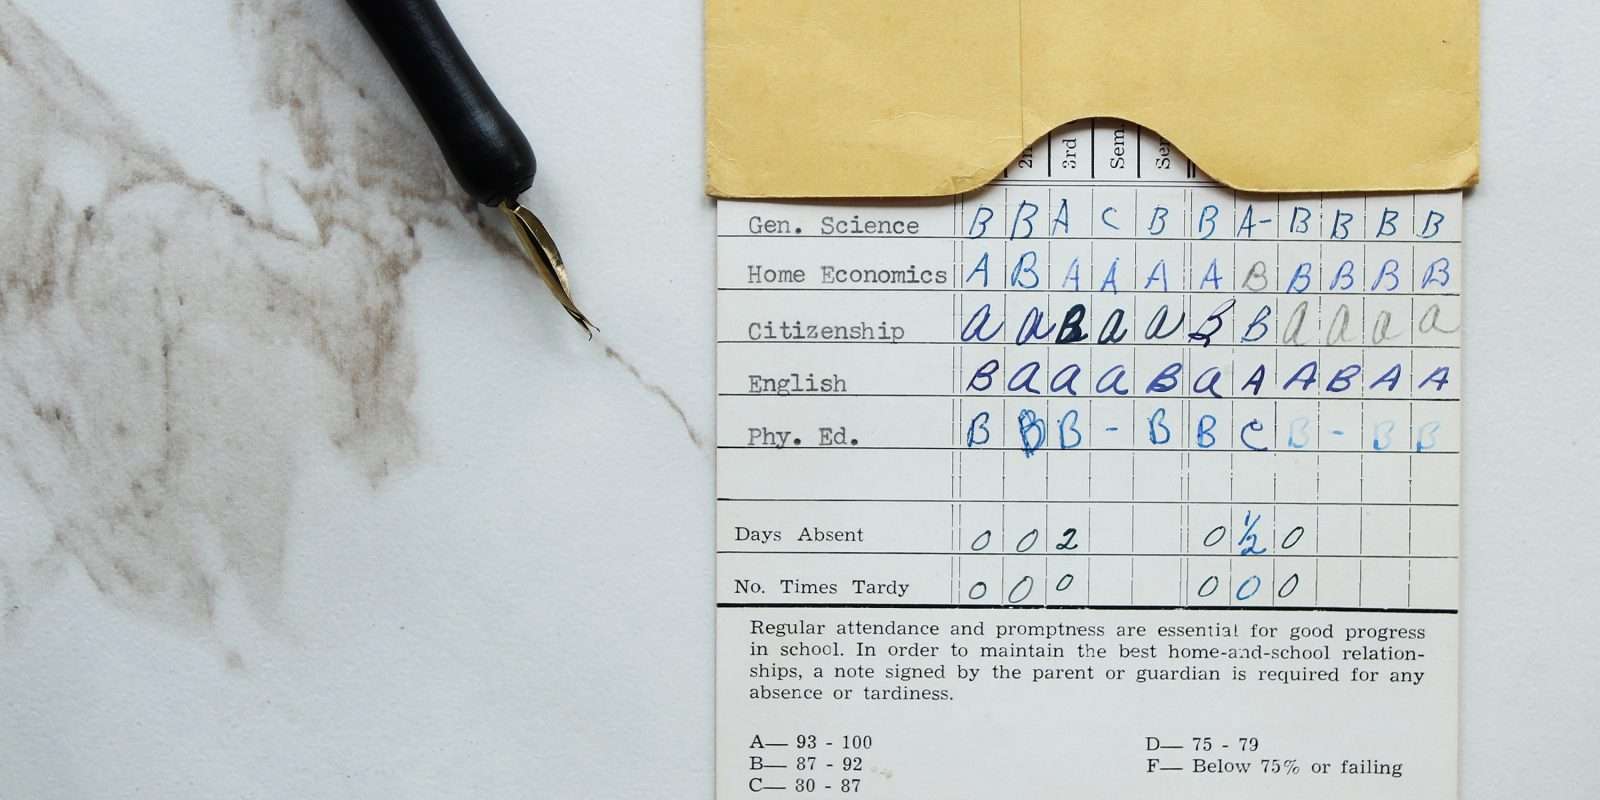 2n 3rd Sem. Sem
Gen. Science B B A C B B A- B B B B
Home Economics A B A A A A B B B B B
Citizenship a a B a a B B a a a a
English B a a a B a A A B A A
Phy. Ed. B B B - B B C B - B B
Days Absent 0 0 2 0 1/2 0
No. Times Tardy 0 0 0 0 0 0
Regular attendance and promptness are essential for good progress
in school. In order to maintain the best home-and-school relation-
ships, a note signed by the parent or guardian is required for any
absence or tardiness.
A— 93 - 100
B— 87 - 92
C— 80 - 87
D— 75 - 79
F— Below 75% or failing